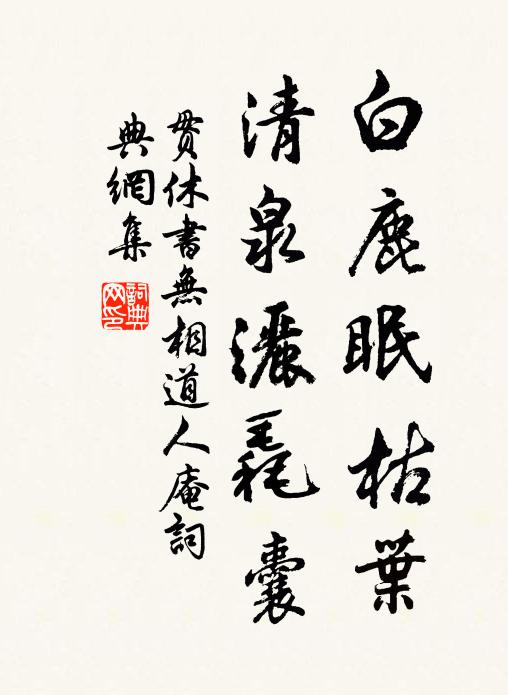 白鹿眠枯葉
清泉灑毳囊
貫休書無相道人庵詞
典網集
詞典網印